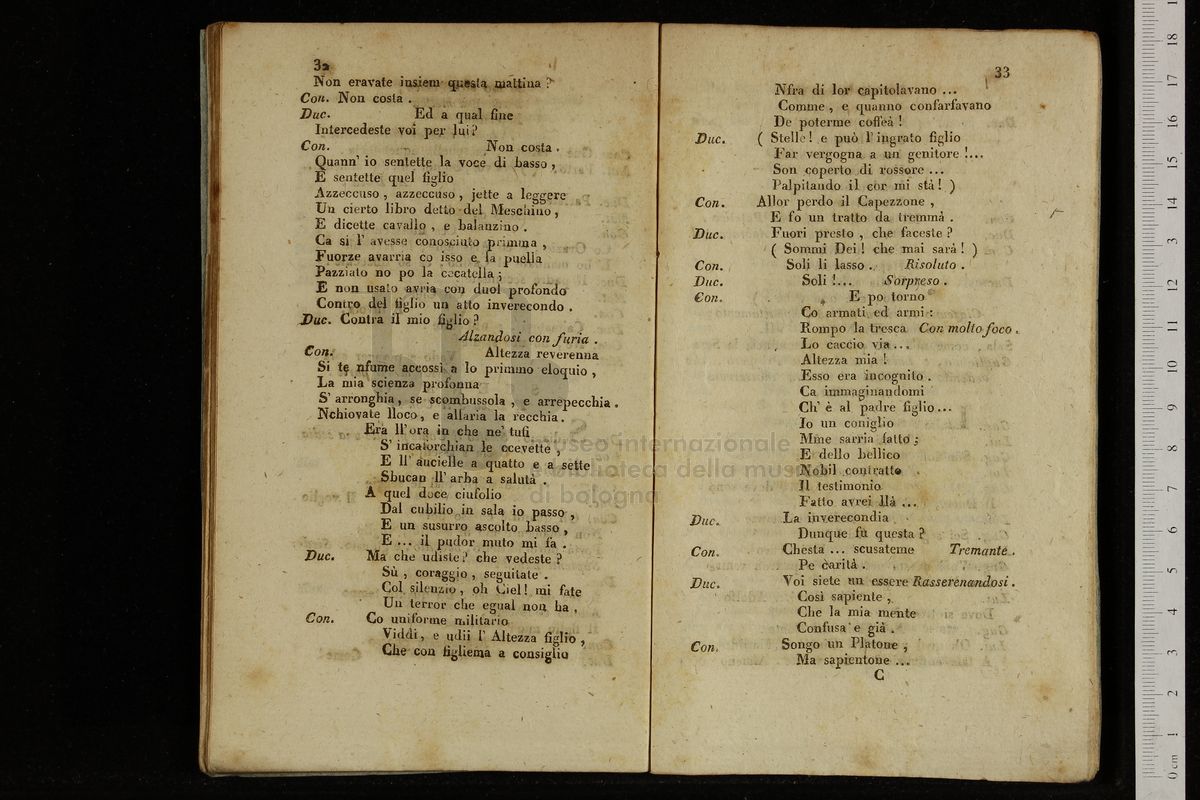 32
Non eravate insiem questa mattina ?
Con. Non costa .
Duc. Ed a qual fine
Intercedeste voi per lui?
Con. Non costa .
Quann' io sentette la voce di basso ,
E sentette quel figlio
Azzeccuso , azzeccuso , jette a leggere
Un cierto libro detto del Meschino ,
E dicette cavallo , e balanzino .
Ca si l' avesse conosciuto primma ,
Fuorze avarria co isso e la puella
Pazziato no po la cacatella ;
E non usato avria con duol profondo
Contro del figlio un atto inverecondo .
Duc. Contra il mio figlio ?
Alzandosi con furia .
Con. Altezza reverenna
Si te nfume accossì a lo primmo eloquio ,
La mia scienza profonna
S' arronghia , se scombussola , e arrepecchia .
Nchiovate lloco , e allaria la recchia .
Era ll' ora in che ne' tufi
S' incatorchian le ccevette ,
E ll' aucielle a quatto e a sette
Sbucan ll' arba a salutà .
A quel doce ciufolio
Dal cubilio in sala io passo ,
E un susurro ascolto basso ,
E ... il pudor muto mi fa .
Duc. Ma che udiste? che vedeste ?
Sù , coraggio , seguitate .
Col silenzio , oh Ciel! mi fate
Un terror che egual non ha ,
Con. Co uniforme militario
Viddi , e udii l' Altezza figlio ,
Che con figliema a consiglio
33
Nfra di lor capitolavano ...
Comme , e quanno confarfavano
De poterme coffeà !
Duc. ( Stelle ! e può l' ingrato figlio
Far vergogna a un genitore !...
Son coperto di rossore ...
Palpitando il cor mi stà ! )
Con. Allor perdo il Capezzone ,
E fo un tratto da tremmà .
Duc. Fuori presto , che faceste ?
( Sommi Dei ! che mai sarà ! )
Con. Soli li lasso . Risoluto .
Duc. Soli !... Sorpreso .
Con. E po torno
Co armati ed armi :
Rompo la tresca Con molto foco .
Lo caccio via ...
Altezza mia !
Esso era incognito .
Ca immaginandomi
Ch' è al padre figlio ...
Io un coniglio
Mme sarria fatto ;
E dello bellico
Nobil contratto
Il testimonio
Fatto avrei llà ...
Duc. La inverecondia
Dunque fù questa ?
Con. Chesta ... scusateme Tremante .
Pe carità .
Duc. Voi siete un essere Rasserenandosi .
Così sapiente ,
Che la mia mente
Confusa è già .
Con. Songo un Platone ,
Ma sapientone ...
C
museo internazionale
e biblioteca della musica
di bologna
0 cm 1 2 3 4 5 6 7 8 9 10 11 12 13 14 15 16 17 18